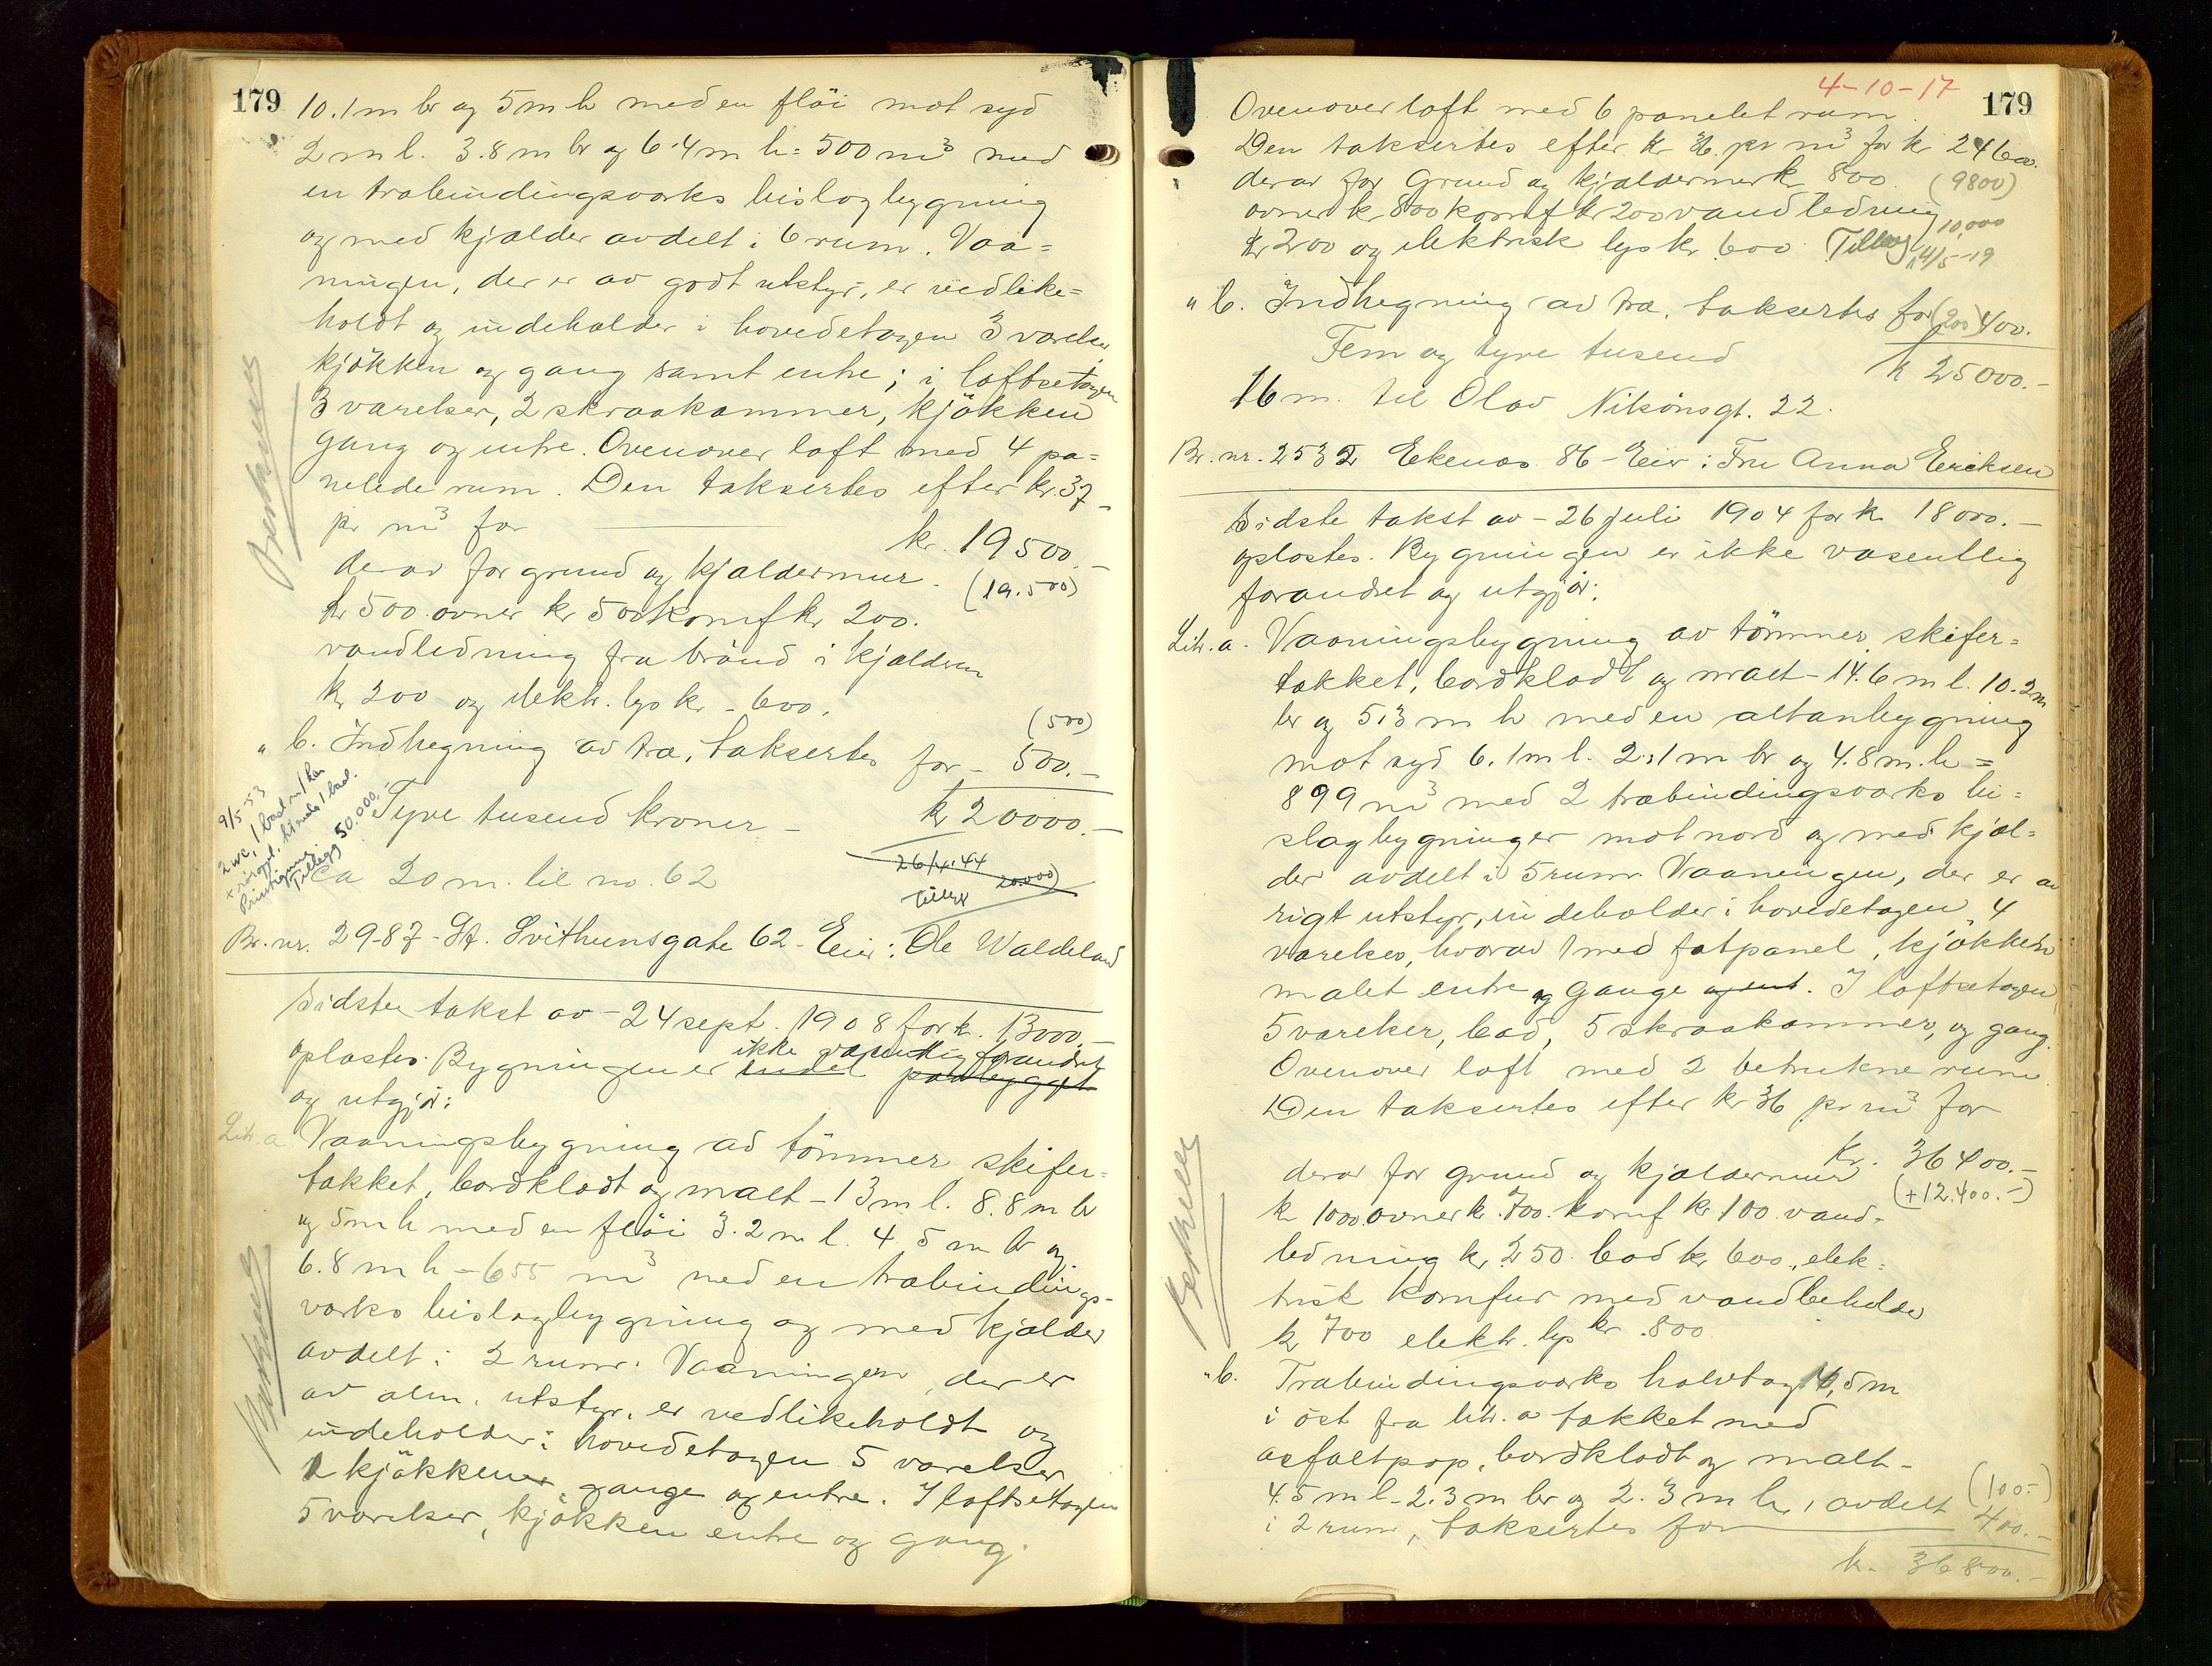 179
10.1 m br og 5 m h med en flöi mot syd
2 m l. 3.8 m br og 6.4 m h = 500 m³ med
en træbindingsværks bislagbygning
og med kjælder avdelt i 6 rum. Vaa=
ningen, der er av godt utstyr, er vedlike=
holdt og indeholder i hovedetagen 3 værelser
kjökken og gang samt entre; i loftsetagen
3 værelser, 2 skraakammer, kjökken
gang og entre. Ovenover loft med 4 pa=
nelede rum. Den taksertes efter kr. 37
pr m³ for kr. 19500.-
derav for grund og kjældermur (19.500)
kr 500 ovner kr 500 komf kr 200.
vandledning fra brönd i kjælderen
kr 200 og elektr. lys kr - 600.
(500)
" b. Indhegning av træ, taksertes for - 500.-
Tyve tusend kroner - kr 20000.-
9/5-53
2 wc, 1 bad
Tillegg 50.000.-
26/4-44
20.000)
Tillegg
ca 20 m. til no. 62
Br. nr. 2987 - St. Svithunsgate 62 - Eier: Ole Waldeland
Sidste takst av - 24 sept. 1908 for kr. 13000.-
oplæstes. Bygningen er endel paabygget
ikke væsentlig forandret
og utgjör:
Litr. a Vaaningsbygning av tömmer, skifer=
tækket, bordklædt og malt - 13 m l. 8.8 m br
og 5 m h med en flöi 3.2 m l. 4.5 m br og
6.8 m h = 655 m³ med en træbindings-
værks bislagbygning og med kjælder
avdelt i 2 rum. Vaaningen, der er
av alm. utstyr, er vedlikeholdt og
indeholder i hovedetagen 5 værelser
1 kjökken, gange og entre. I loftsetagen
5 værelser, kjökken entre og gang.
4-10-17
179
Ovenover loft med 6 panelet rum.
Den taksertes efter kr 36. pr m³ for kr 24600.
derav for grund og kjældermur kr 800 (9800)
ovner kr 800 komf kr 200 vandledning
kr 200 og elektrisk lys kr 600 Tillæg 10,000
14/5-19
" b. Indhegning av træ, taksertes for (200) 400.
Fem og tyve tusend kr 25000.-
16 m. til Olav Nilsönsgt. 22.
Br. nr. 2532 Ekenæs 86 - Eier: Fru Anna Ericksen
Sidste takst av - 26 juli 1904 for kr 18000.-
oplæstes. Bygningen er ikke væsentlig
forandret og utgjör:
Litr. a. Vaaningsbygning av tömmer, skifer=
tækket, bordklædt og malt - 14.6 m l. 10.2 m
br og 5.3 m h med en altanbygning
mot syd 6.1 m l. 2.1 m br og 4.8 m. h =
899 m³ med 2 træbindingsværks bi=
slagbygninger mot nord og med kjæl=
der avdelt i 5 rum. Vaaningen, der er av
rigt utstyr, indeholder i hovedetagen 4
værelser, hvorav 1 med fatpanel, kjökken
malet entre og gange og ent. I loftsetagen
5 værelser, bad, 5 skraakammer, og gang.
Ovenover loft med 2 betrukne rum.
Den taksertes efter kr 36 pr m³ for
Kr. 36400.-
derav for grund og kjældermur (+12.400.-)
kr 1000. ovner kr. 700. komf kr 100 vand-
ledning kr 250. bad kr 600, elek=
trisk komfur med vandbeholder
kr 700 elektr. lys kr. 800
" b. Træbindingsværks halvtag 16,5 m
i öst fra litr. a tækket med
asfaltpap, bordklædt og malt -
4.5 m l - 2.3 m br og 2.3 m h, avdelt (100-)
i 2 rum, taksertes for 400.-
kr. 36800.-